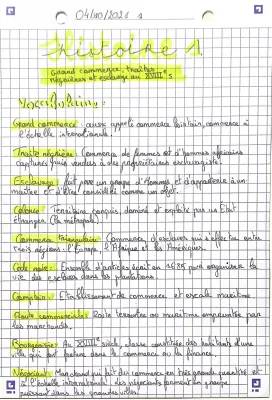 04/10/2021
Histoire 1
Grand commerce, traites
négrières et esclavage au XVIIIe s
Vocabulaire :
Grand commerce : aussi appelé commerce lointain, commerce à
l'échelle internationale.
Traite négrière : Commerce de femmes et d'hommes africains
capturés puis vendus à des propriétaires esclavagistes.
Esclavage : fait pour un groupe d'Hommes et d'appartenir à un
maître et d'être considéré comme un objet.
Colonie : Territoire conquis, dominé et exploité par un État
étranger (la métropole).
Commerce triangulaire : Commerce d'esclaves qui s'effectue entre
trois régions : l'Europe, l'Afrique et les Amériques.
Code noir : Ensemble d'articles écrit en 1685 pour organiser la
vie des esclaves dans les plantations.
Comptoir : Etablissement de commerce et escale maritime
Route commerciale : Route terrestre ou maritime empruntée par
les marchands.
Bourgeoisie : Au XVIIIe siècle, classe constituée des habitants d'une
ville qui font fortune dans le commerce ou la finance.
Négociant : Marchand qui fait du commerce en très grande quantité et
à l'échelle internationale. les négociants forment un groupe
puissant dans les grandes villes.